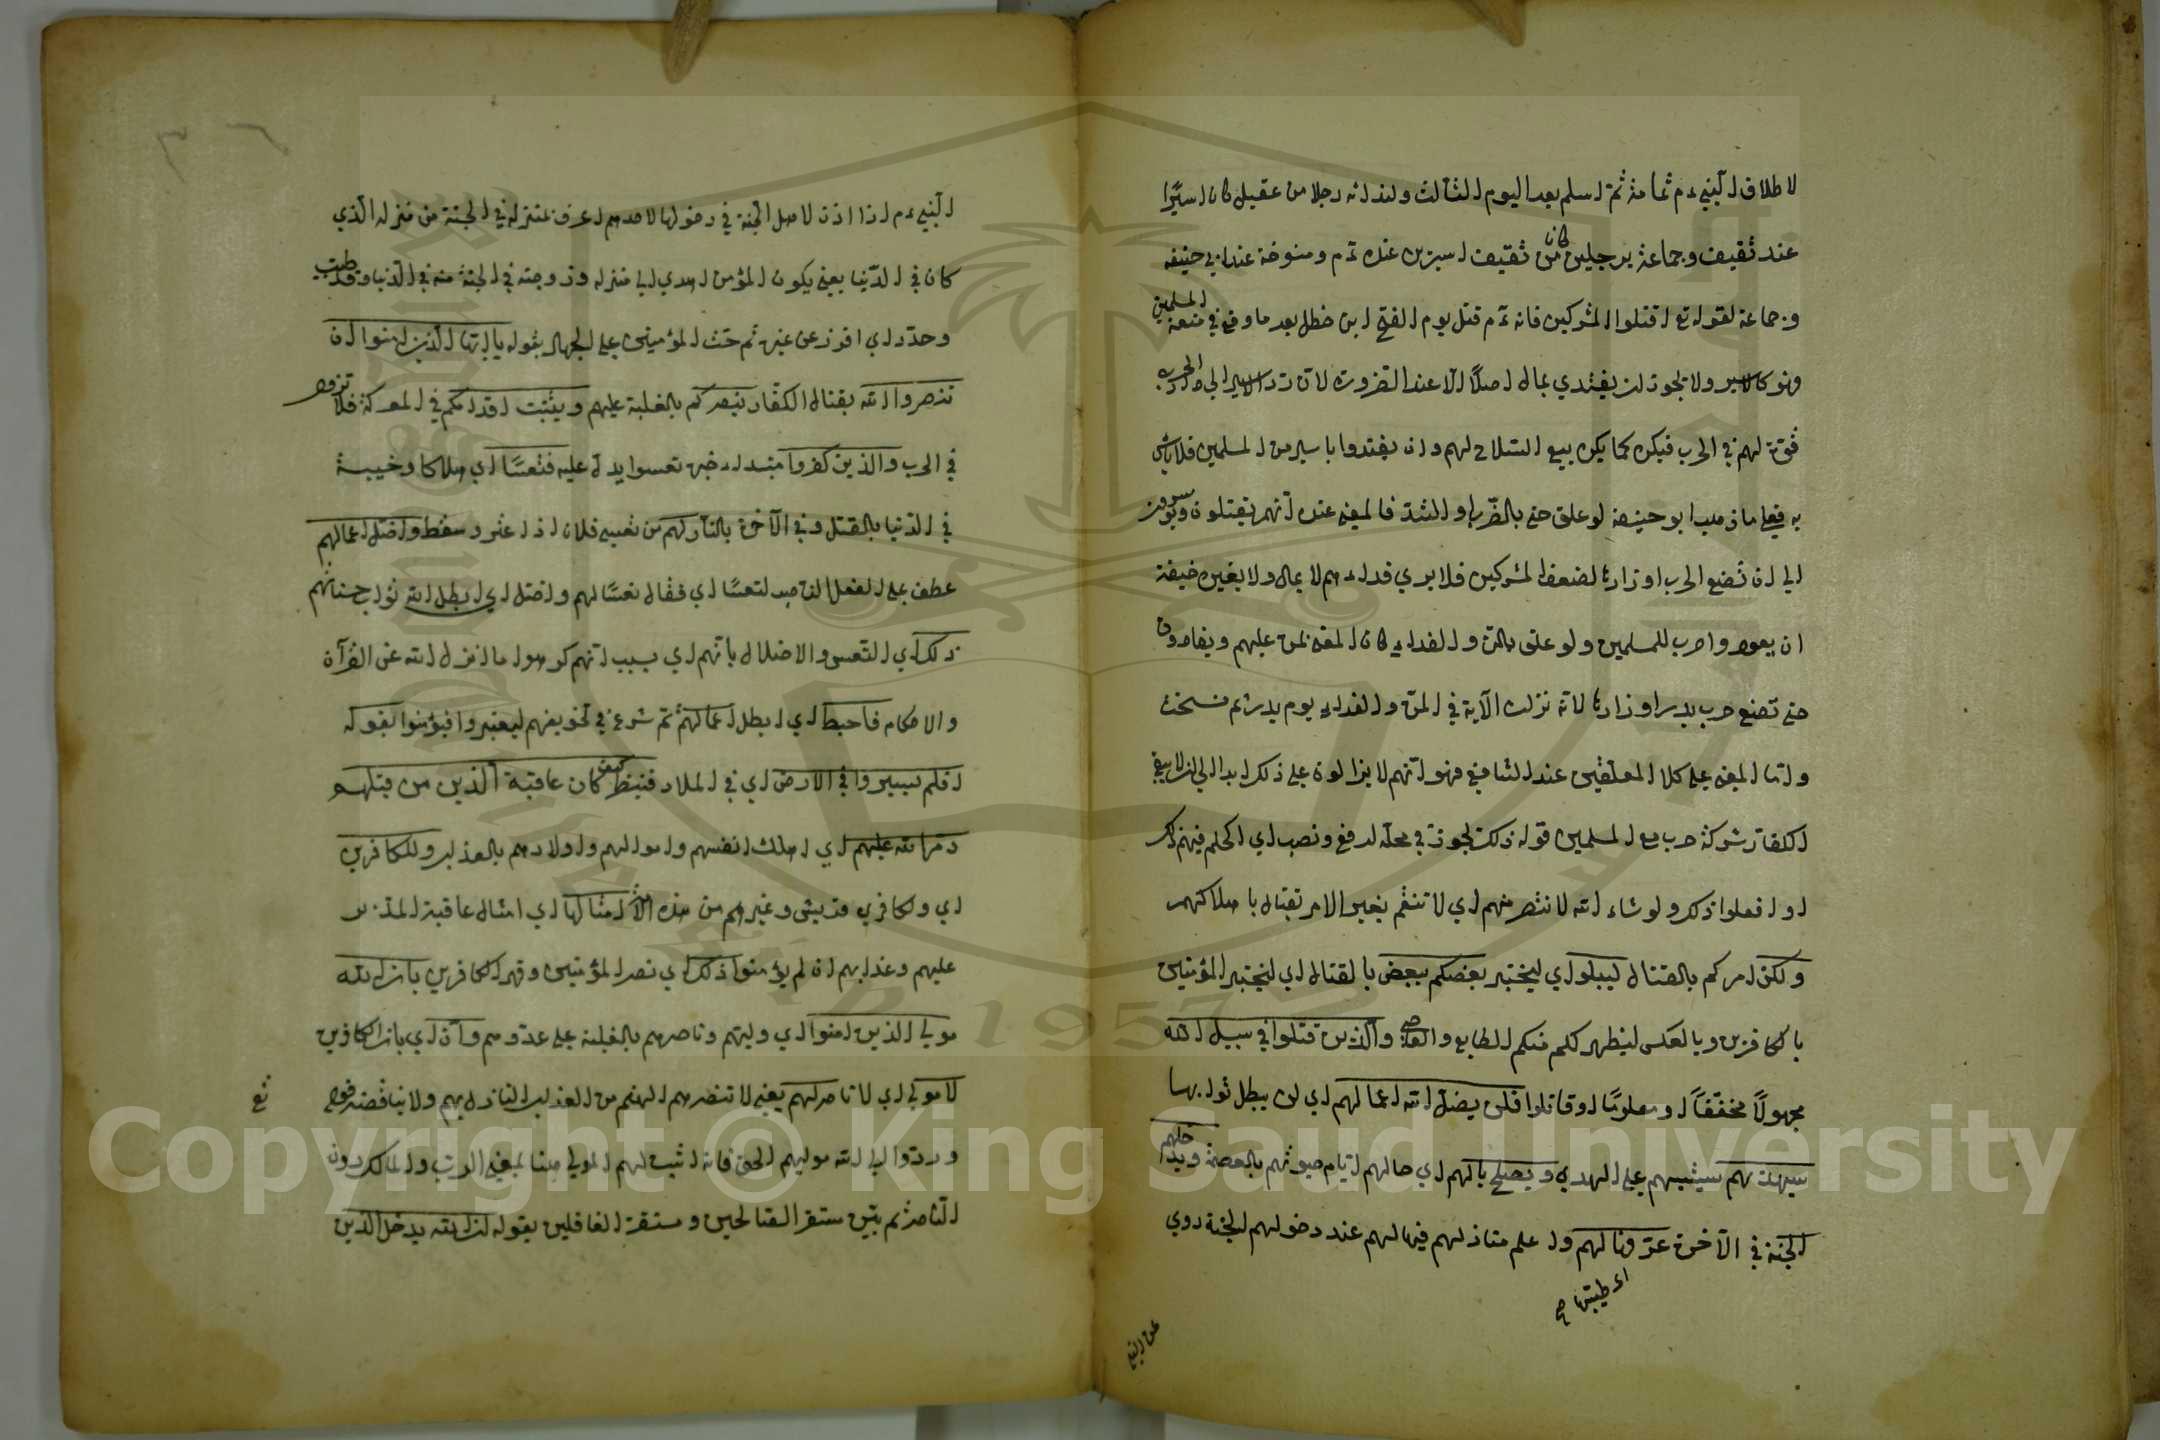 لاطلاق النبي عم ثمامة ثم اسلم بعد اليوم الثالث ولفدائه رجلا من عقيل كان اسيرا
عند ثقيف وجماعة برجلين كان من ثقيف اسيرين عنده عم ومنسوخة عند ابي حنيفة
وجماعة لقوله تع اقتلوا المشركين فانه عم قتل يوم الفتح ابن خطل بعد ما وقع في منعة المسلمين
وهو كالاسير ولا تجوز ان يفتدي بمال اصلا الا عند الضرورة لان رد الاسير الى دار الحرب
قوة لهم في الحرب فيكره كما يكره بيع السلاح لهم وان يفتدوا باسير من المسلمين فلا بأس
به فعلى ما ذهب ابو حنيفة لو علق حتى بالضرب او الشد فالمعنى عنده انهم يقتلون ويؤسرون
الى ان تضع الحرب اوزارها لضعف المشركين فلا يرى فداءهم لا بمال ولا بغيره خيفة
ان يعودوا حرب للمسلمين ولو علق بالمن والفداء كان المعنى نمن عليهم ويفادون
حتى تضع حرب بدر اوزارها لانه نزلت الآية في المن والفداء يوم بدر ثم نسخت
واما المعنى على كلا المعلقين عند الشافعي فهو انهم لا يزالون على ذلك ابدا الى ان لا يبقى
للكفار شوكة حرب مع المسلمين قوله ذلك يجوز في محله الرفع ونصب اي الحكم فيهم ذلك
او افعلوا ذلك ولو شاء الله لانتصر منهم اي لانتقم بغير الامر بقتال باهلاكهم
ولكن امركم بالقتال ليبلو اي ليختبر بعضكم ببعض بالقتال اي ليختبر المؤمنين
بالكافرين وبالعكس ليظهر لكم منكم المطابع والعاصي والذين قتلوا في سبيل الله
مجهولا مخففا او معلوما او قاتلوا فلن يضل الله اعمالهم اي لن يبطل ثوابها
سيهديهم سيثبتهم على الهدى ويصلح بالهم اي حالهم ايام حيوتهم بالعصمة ويدخلهم
الجنة في الآخرة عرفها لهم واعلم منازلهم فيها لهم عند دخولهم الجنة روي
اى طيبها صح
عن النبي
النبي عم اذا اذن لاهل الجنة في دخولها لاحدهم اعرف بمنزله في الجنة من منزله الذي
كان في الدنيا يعني يكون المؤمن اهدى الى منزله وزوجته في الجنة منه في الدنيا وقد طيب
وحدد اي افرز عن غيره ثم حث المؤمنين على الجهاد بقوله يا ايها الذين امنوا ان
تنصروا الله بقتال الكفار ينصركم بالغلبة عليهم ويثبت اقدامكم في المعركة فلا تزول
في الحرب والذين كفروا مبتدأ خبره تعسوا يدل عليه فتعسا اي هلاكا وخيبة
في الدنيا بالقتل وفي الآخرة بالنار لهم من تعس فلان اذا عثر وسقط واضل اعمالهم
عطف على الفعل الناصب لتعسا اي فقال تعسا لهم واضل اي ابطل الله ثواب حسناتهم
ذلك اي التعس والاضلال بانهم اي بسبب انهم كرهوا ما انزل الله عن القرآن
والاحكام فاحبط اي ابطل اعمالهم ثم شرع في تخويفهم ليعتبروا فيؤمنوا بقوله
افلم يسيروا في الارض اي في البلاد فينظروا كيف كان عاقبة الذين من قبلهم
دمر الله عليهم اي اهلك انفسهم واموالهم واولادهم بالعذاب وللكافرين
اي ولكافري قريش وغيرهم من هذه الامة امثالها اي امثال عاقبة
عليهم وعذابهم ان لم يؤمنوا ذلك اي نصر المؤمنين وقهر الكافرين بان الله
مولى الذين امنوا اي وليهم وناصرهم بالغلبة على عدوهم وان اي بان الكافرين
لا مولى اي لا ناصر لهم يعني لا تنصرهم الهتهم من العذاب النازل بهم ولا يناقضه قوله تع
وردوا الى الله موليهم الحق فانه اثبت لهم المولى هنا بمعنى الرب والمالك دون
الناصر ثم بين مستقر الصالحين ومستقر الغافلين بقوله ان الله يدخل الذين
Copyright © King Saud University
1957